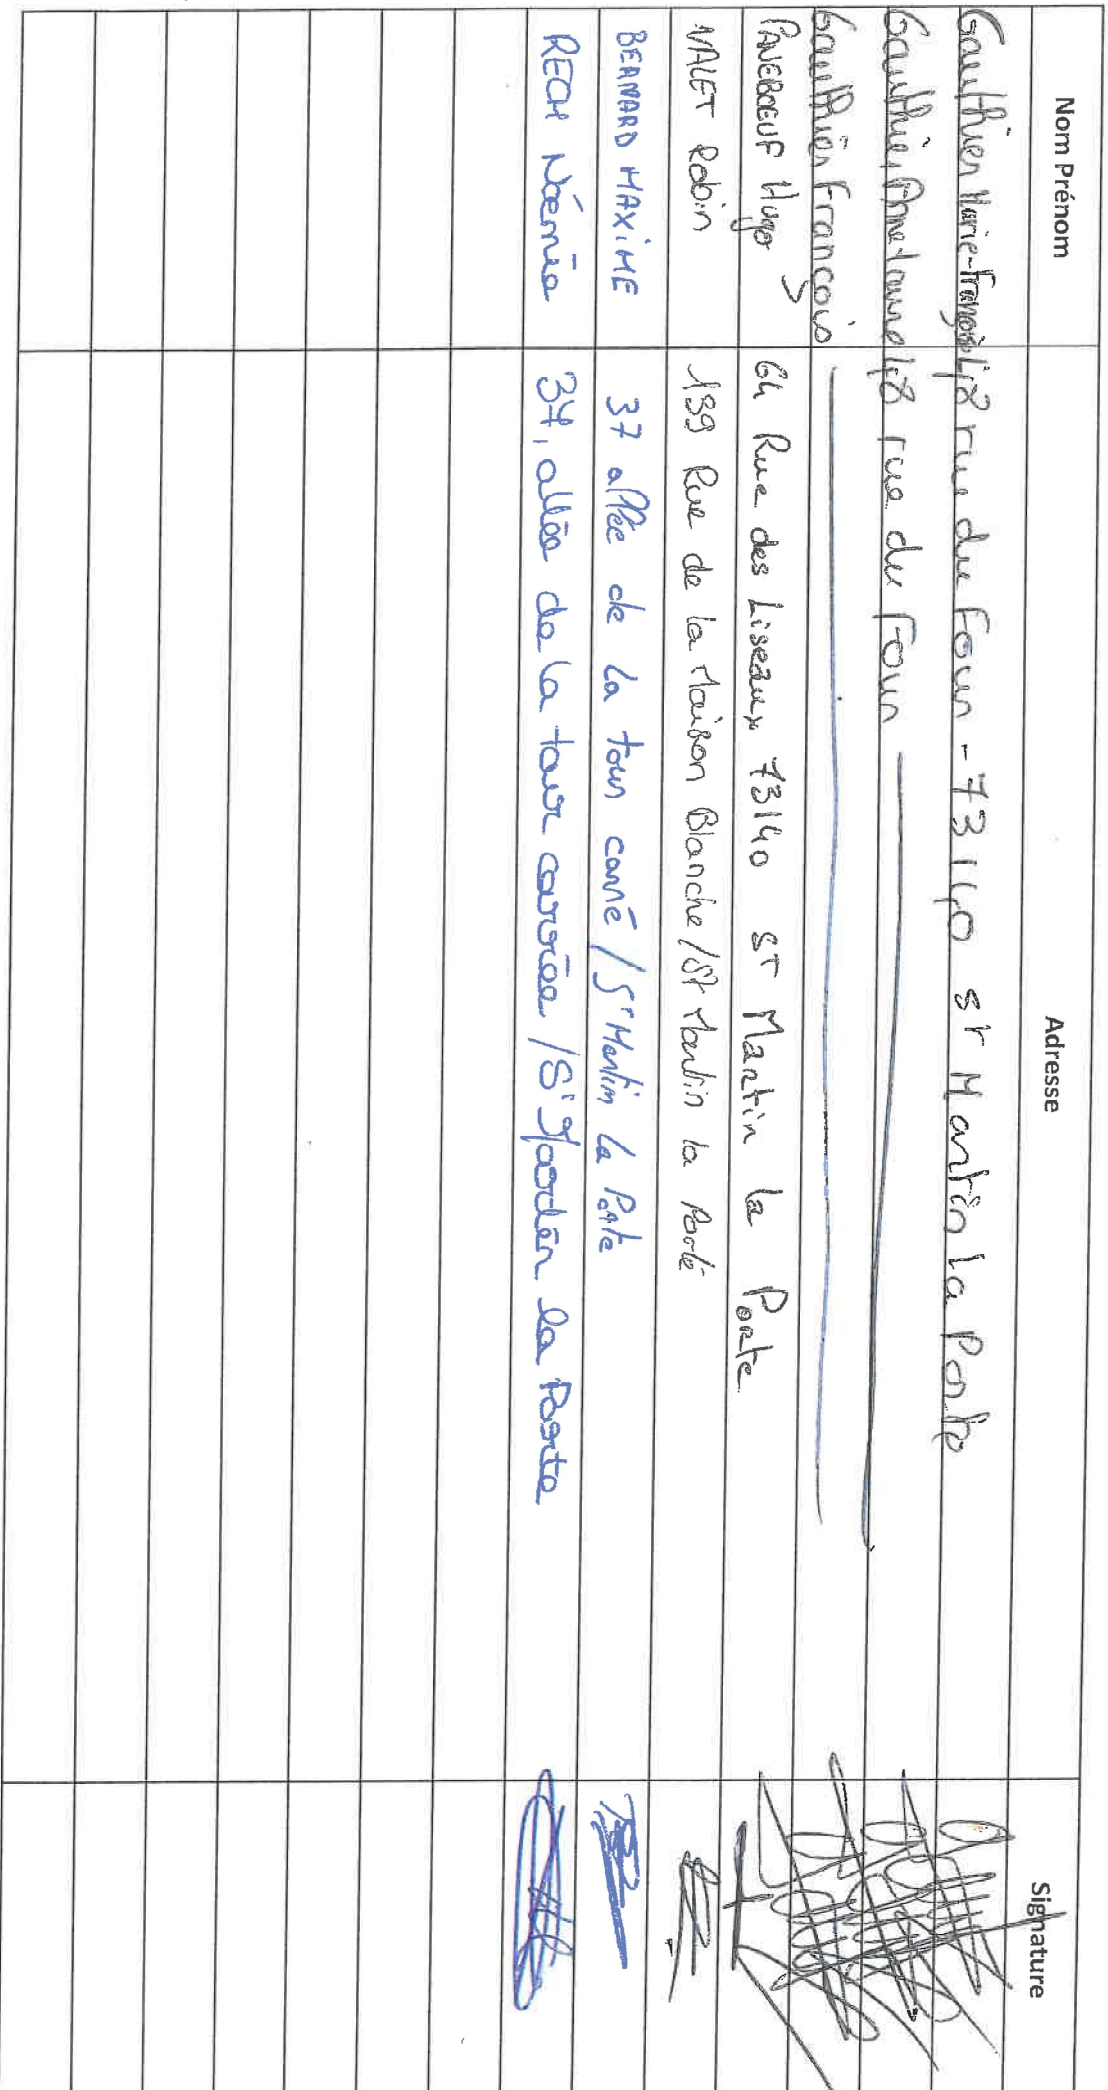 Nom Prénom Adresse Signature
Gauthier Marie-Françoise 48 rue du Four - 73140 St Martin la Porte
Gauthier Anne-Laure 48 rue du Four
Gauthier François
PANEBOEUF Hugo 64 Rue des Liseaux 73140 ST Martin la Porte
VALET Robin 199 Rue de la Maison Blanche / St Martin la Porte
BERNARD MAXIME 37 allée de la tour carré / St Martin la Porte
RECH Noémie 37, allée de la tour carrée / St Martin la Porte